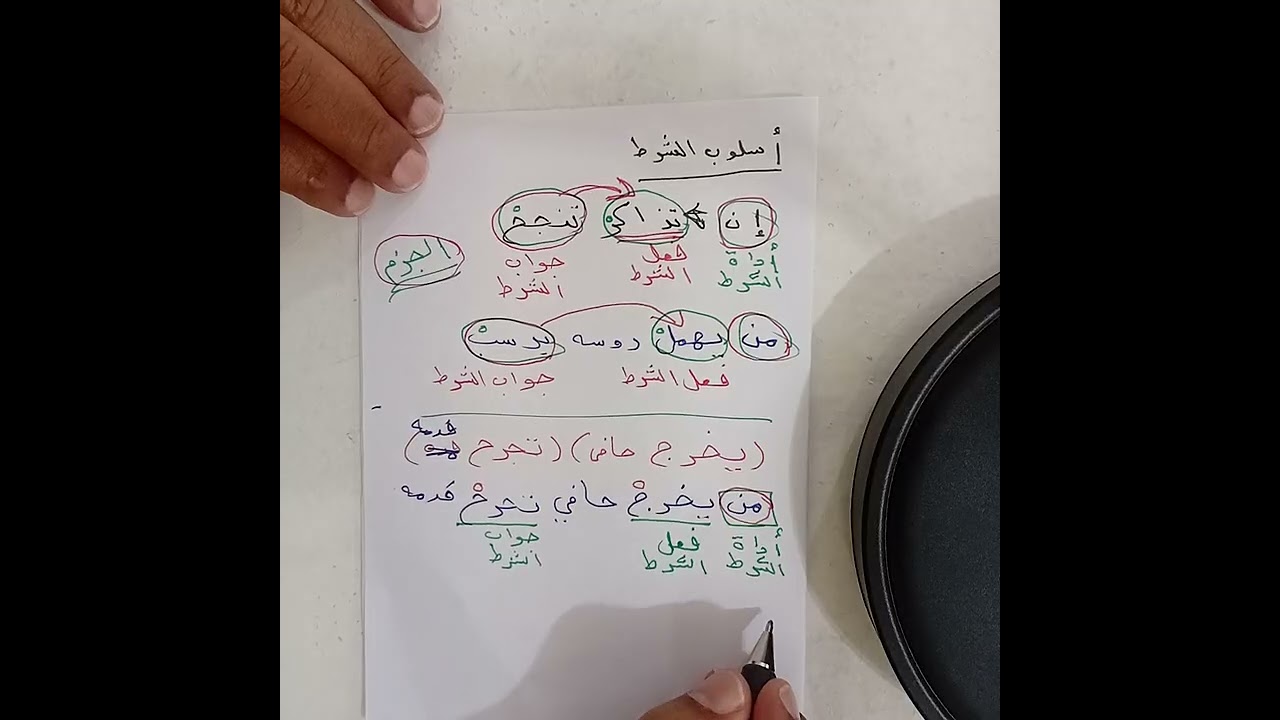 أسلوب الشرط
إن تذاكرْ تنجحْ
أداة الشرط فعل الشرط جواب الشرط
الجزم
من يهملْ دروسه يرسبْ
فعل الشرط جواب الشرط
(يخرج حافى) (تجرح قدمه)
من يخرجْ حافي تجرحْ قدمه
أداة الشرط فعل الشرط جواب الشرط